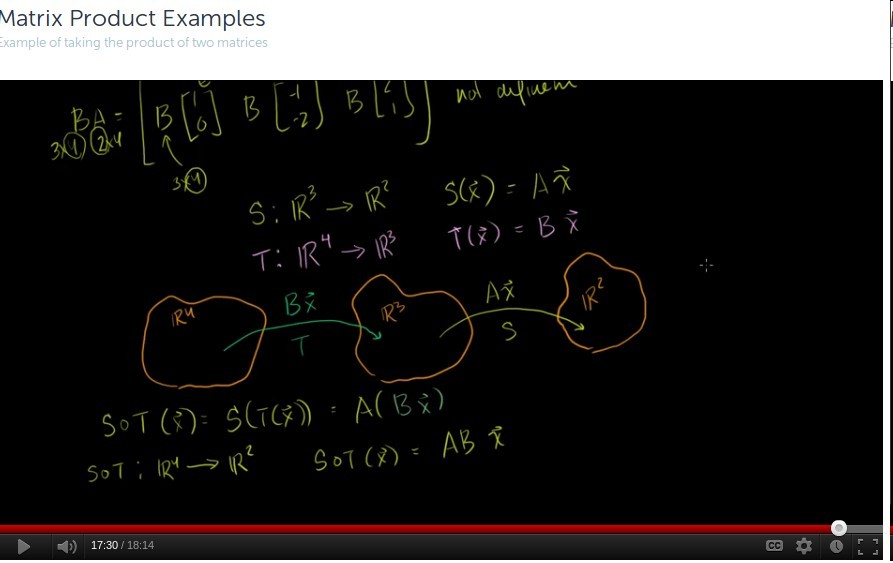 Matrix Product Examples
Example of taking the product of two matrices
BA = [B [1 0] B [-1 -2] B [2 1]] not defined
3x4 2x4
3x4
S: ℝ³ → ℝ² S(x⃗) = Ax⃗
T: ℝ⁴ → ℝ³ T(x⃗) = Bx⃗
ℝ⁴ Bx⃗ T ℝ³ Ax⃗ S ℝ²
SoT (x⃗) = S(T(x⃗)) = A(Bx⃗)
SoT: ℝ⁴ → ℝ² SoT (x⃗) = ABx⃗
17:30 / 18:14 CC